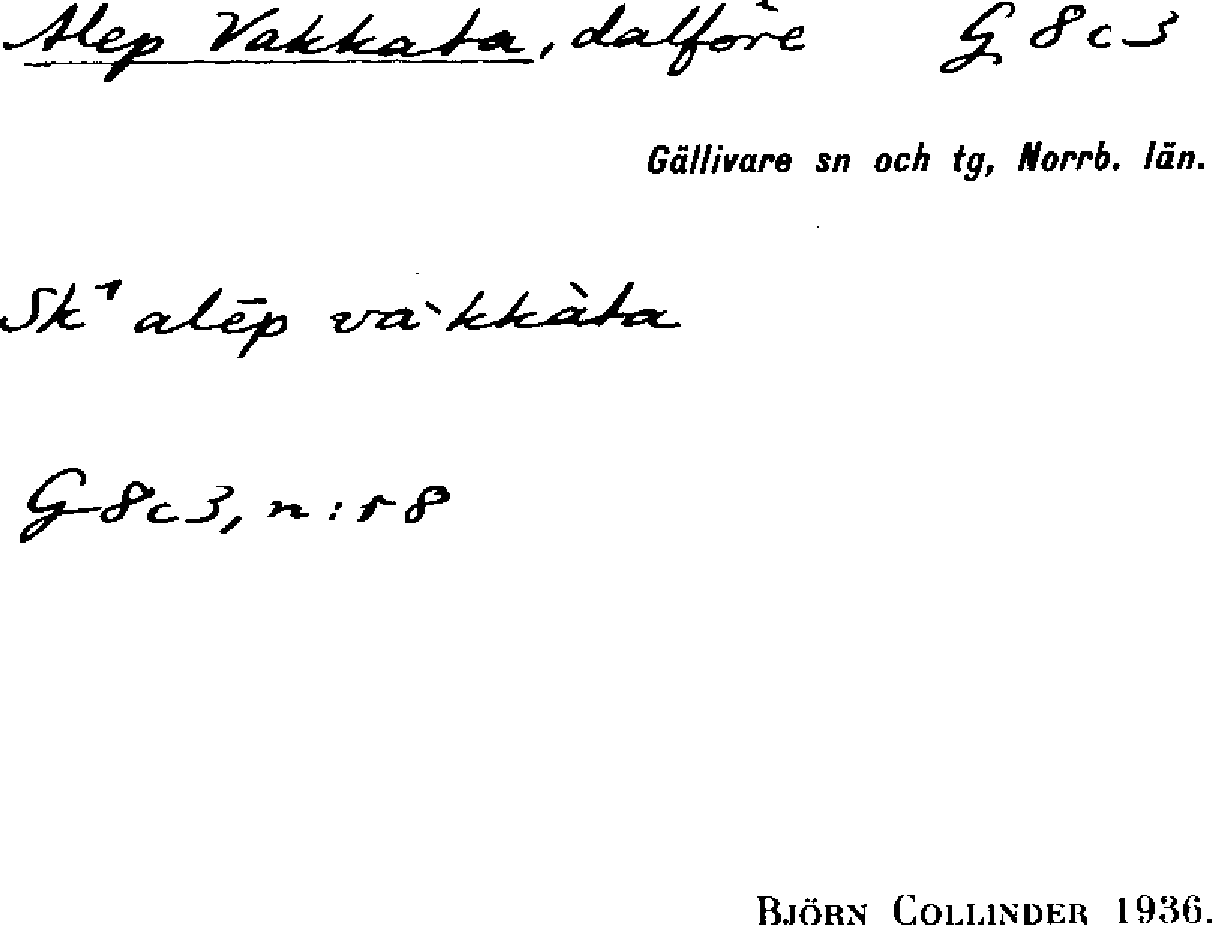 Alep Vakkata, dalföre G 8 c 3
Gällivare sn och tg, Norrb. län.
Sk¹ alēp va`kkàta
G 8 c 3, n:r 8
BJÖRN COLLINDER 1936.